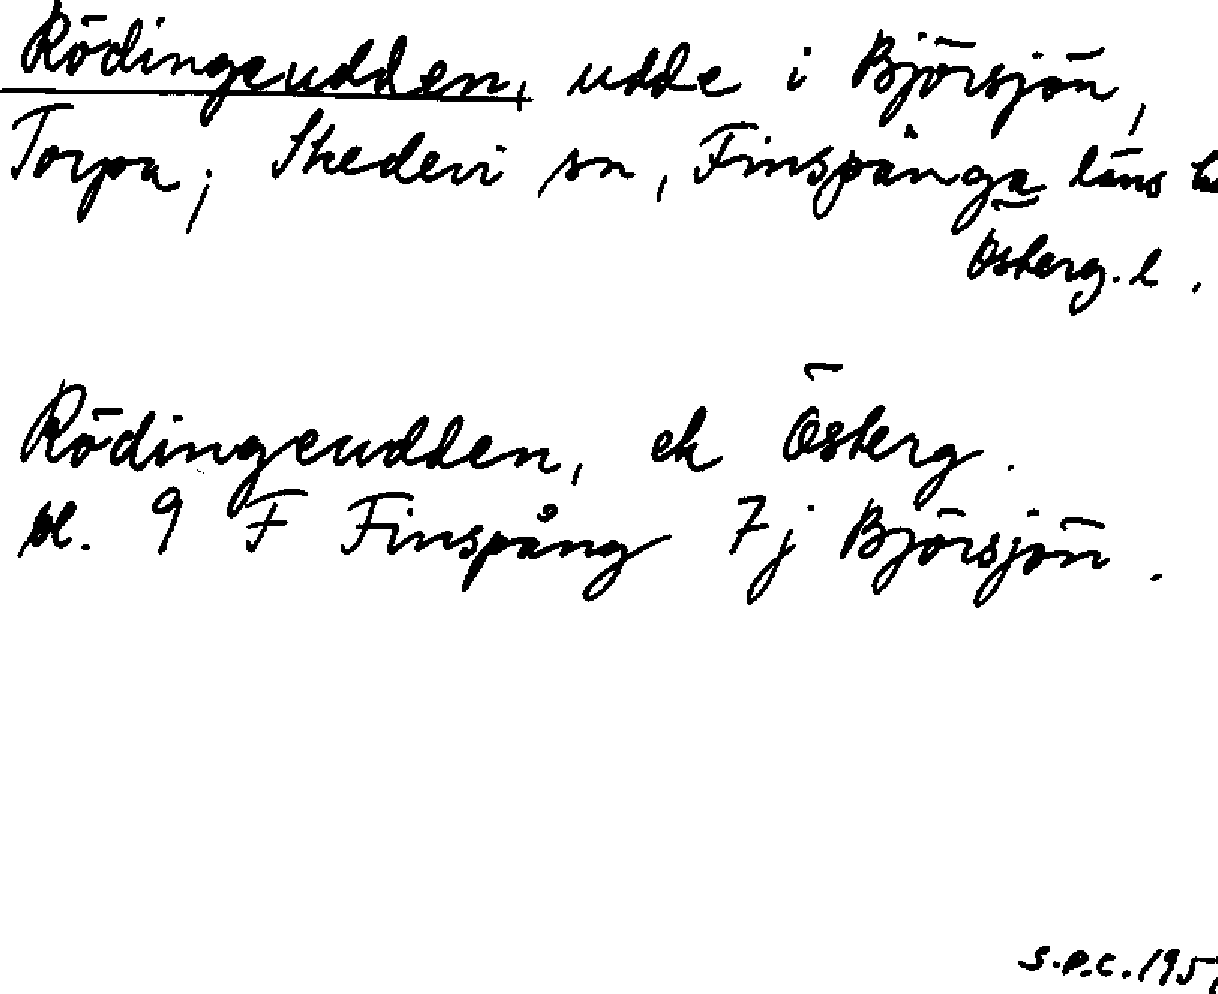 Rödingeudden, udde i Björsjön,
Torpa; Skedevi sn, Finspånga läns
Österg. l.
Rödingeudden, ek Österg.
bl. 9 F Finspång 7j Björsjön.
S.P.C. 195